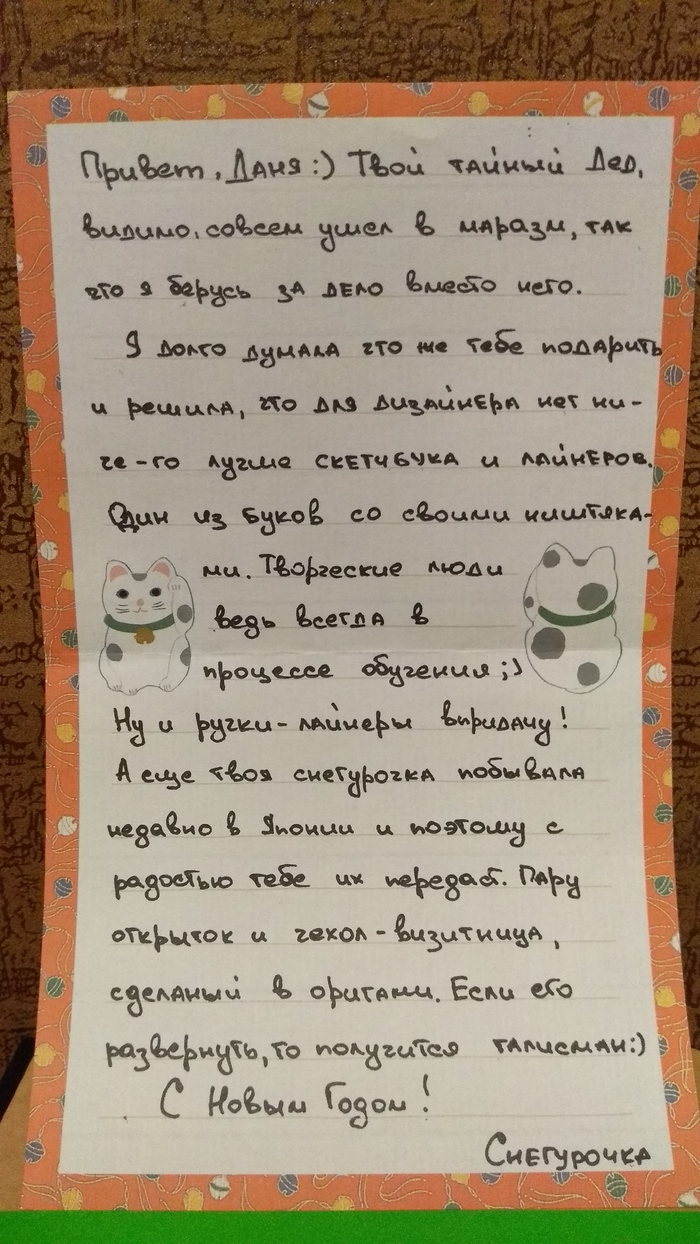 Привет, Даня:) Твой тайный Дед,
видимо, совсем ушел в маразм, так
что я берусь за дело вместо него.
Я долго думала что же тебе подарить
и решила, что для дизайнера нет ни-
че-го лучше скетчбука и лайнеров.
Один из буков со своими ништяка-
ми. Творческие люди
ведь всегда в
процессе обучения ;)
Ну и ручки-лайнеры впридачу!
А еще твоя снегурочка побывала
недавно в Японии и поэтому с
радостью тебе их передаст. Пару
открыток и чехол-визитница,
сделаный в оригами. Если его
развернуть, то получится талисман:)
С Новым Годом!
Снегурочка